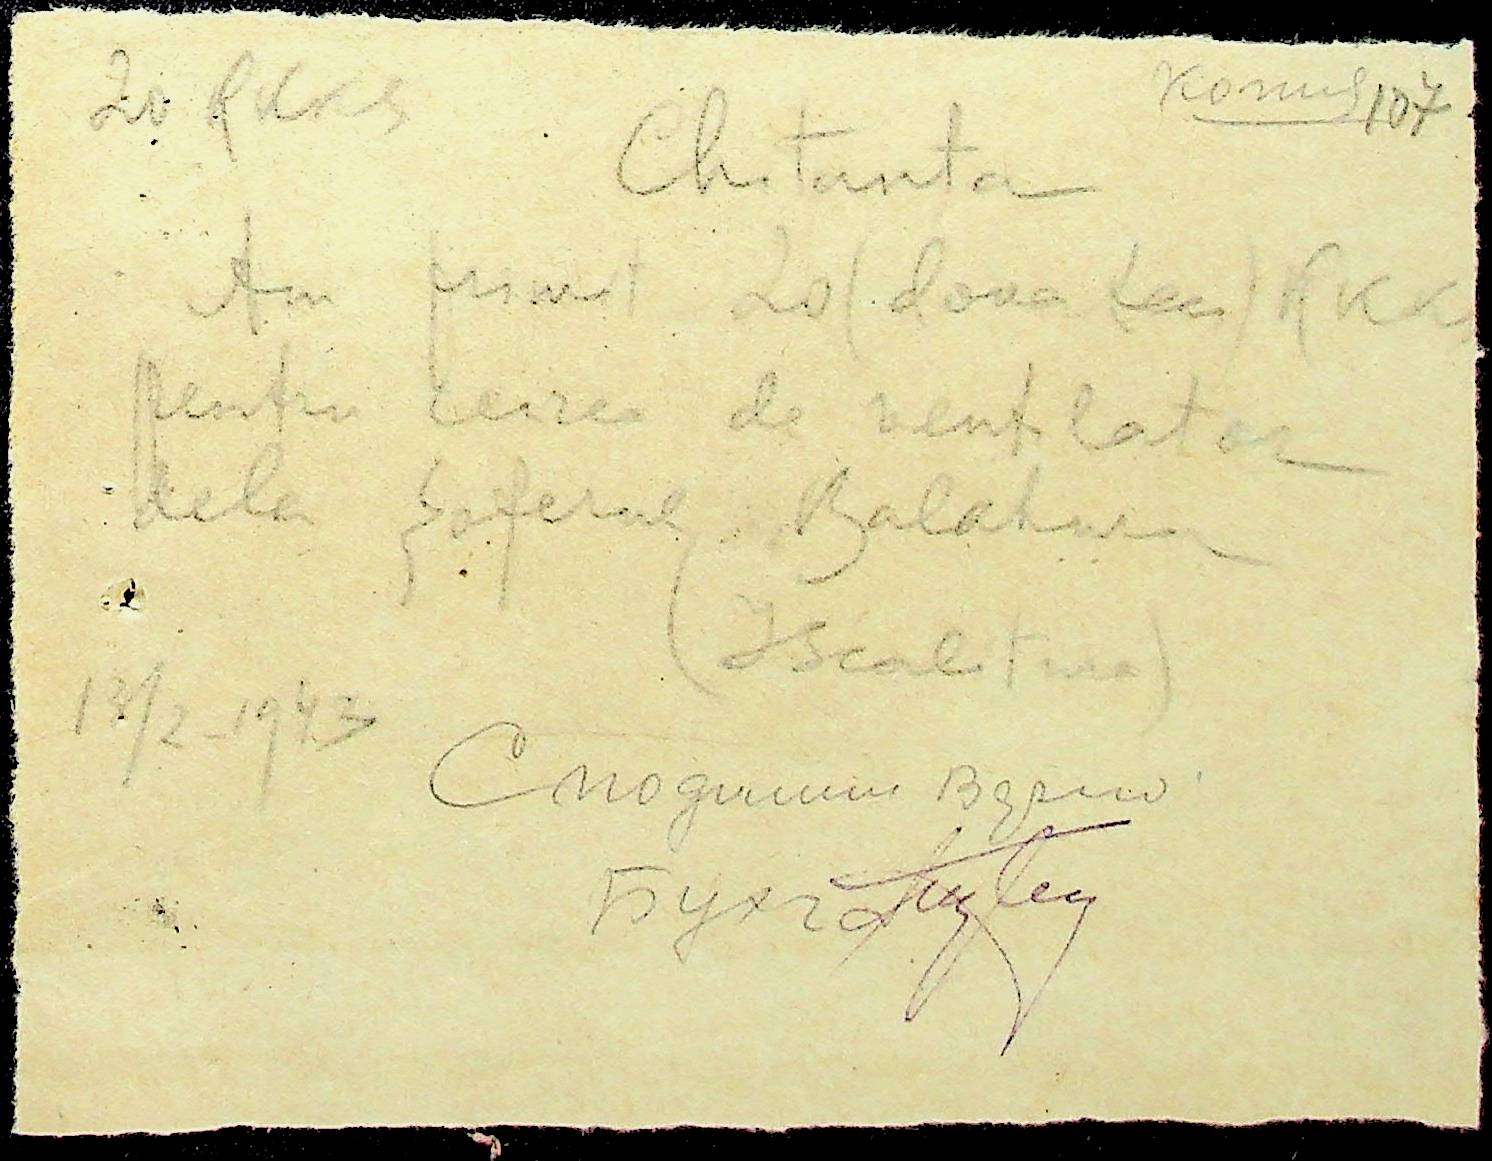 20 RKKS
копия 107
Chitanta
Am primit 20 (doua zeci) RKKS
pentru de ventilator
dela șoferul Balahura
(Iscalitura)
18/2 - 1943
С подлинним верно
Бухга